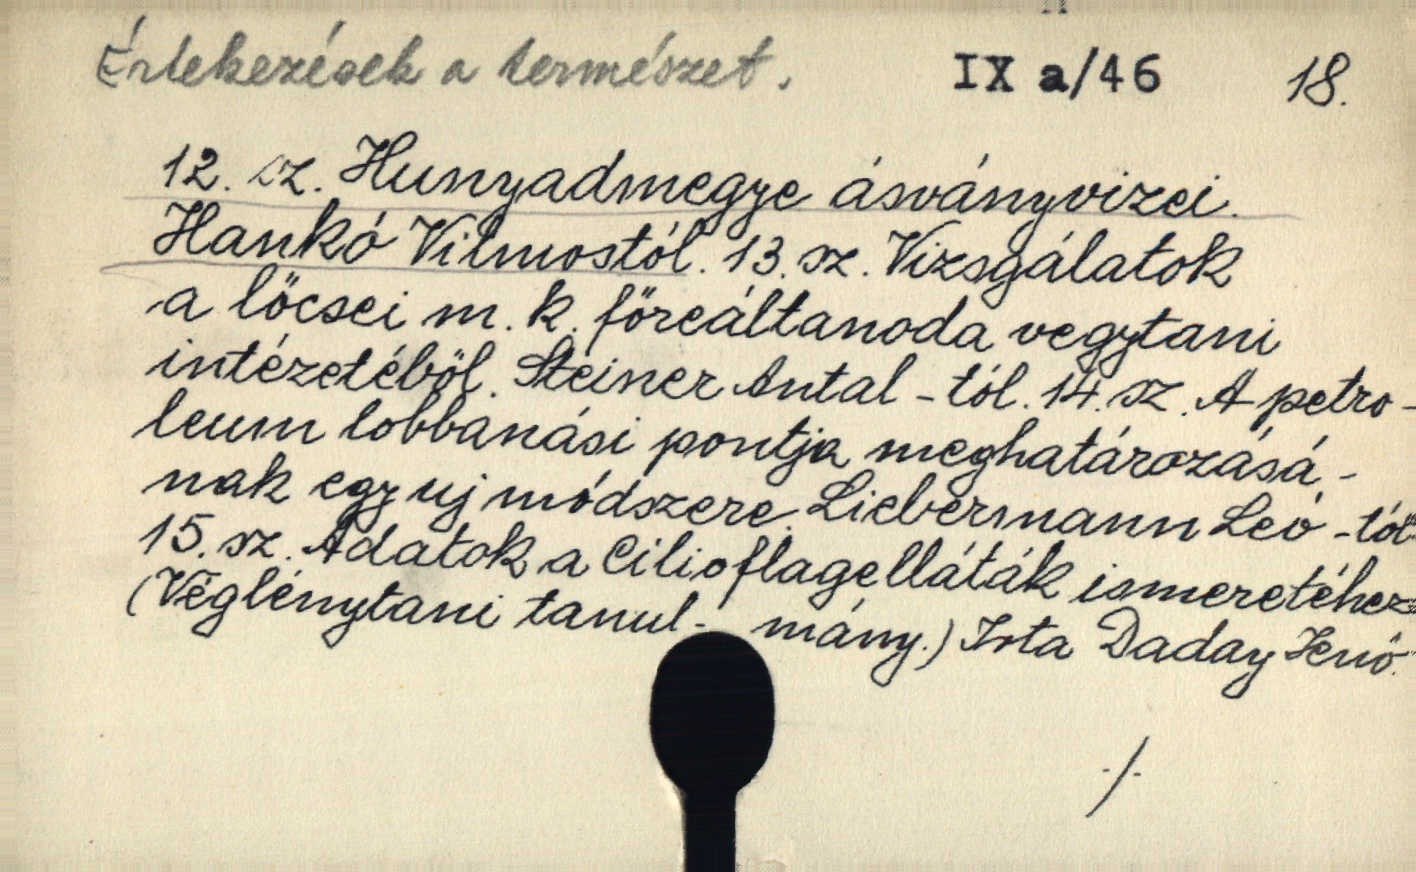 Értekezések a természet. IX a/46 18.
12. sz. Hunyadmegye ásványvizei.
Hankó Vilmostól. 13. sz. Vizsgálatok
a lőcsei m. k. főreáltanoda vegytani
intézetéből. Steiner Antal-tól. 14. sz. A petro-
leum lobbanási pontja meghatározásá-
nak egy uj módszere. Liebermann Leó-tól
15. sz. Adatok a Cilioflagelláták ismeretéhez
(Véglénytani tanul- mány.) Irta Daday Jenő.
./.